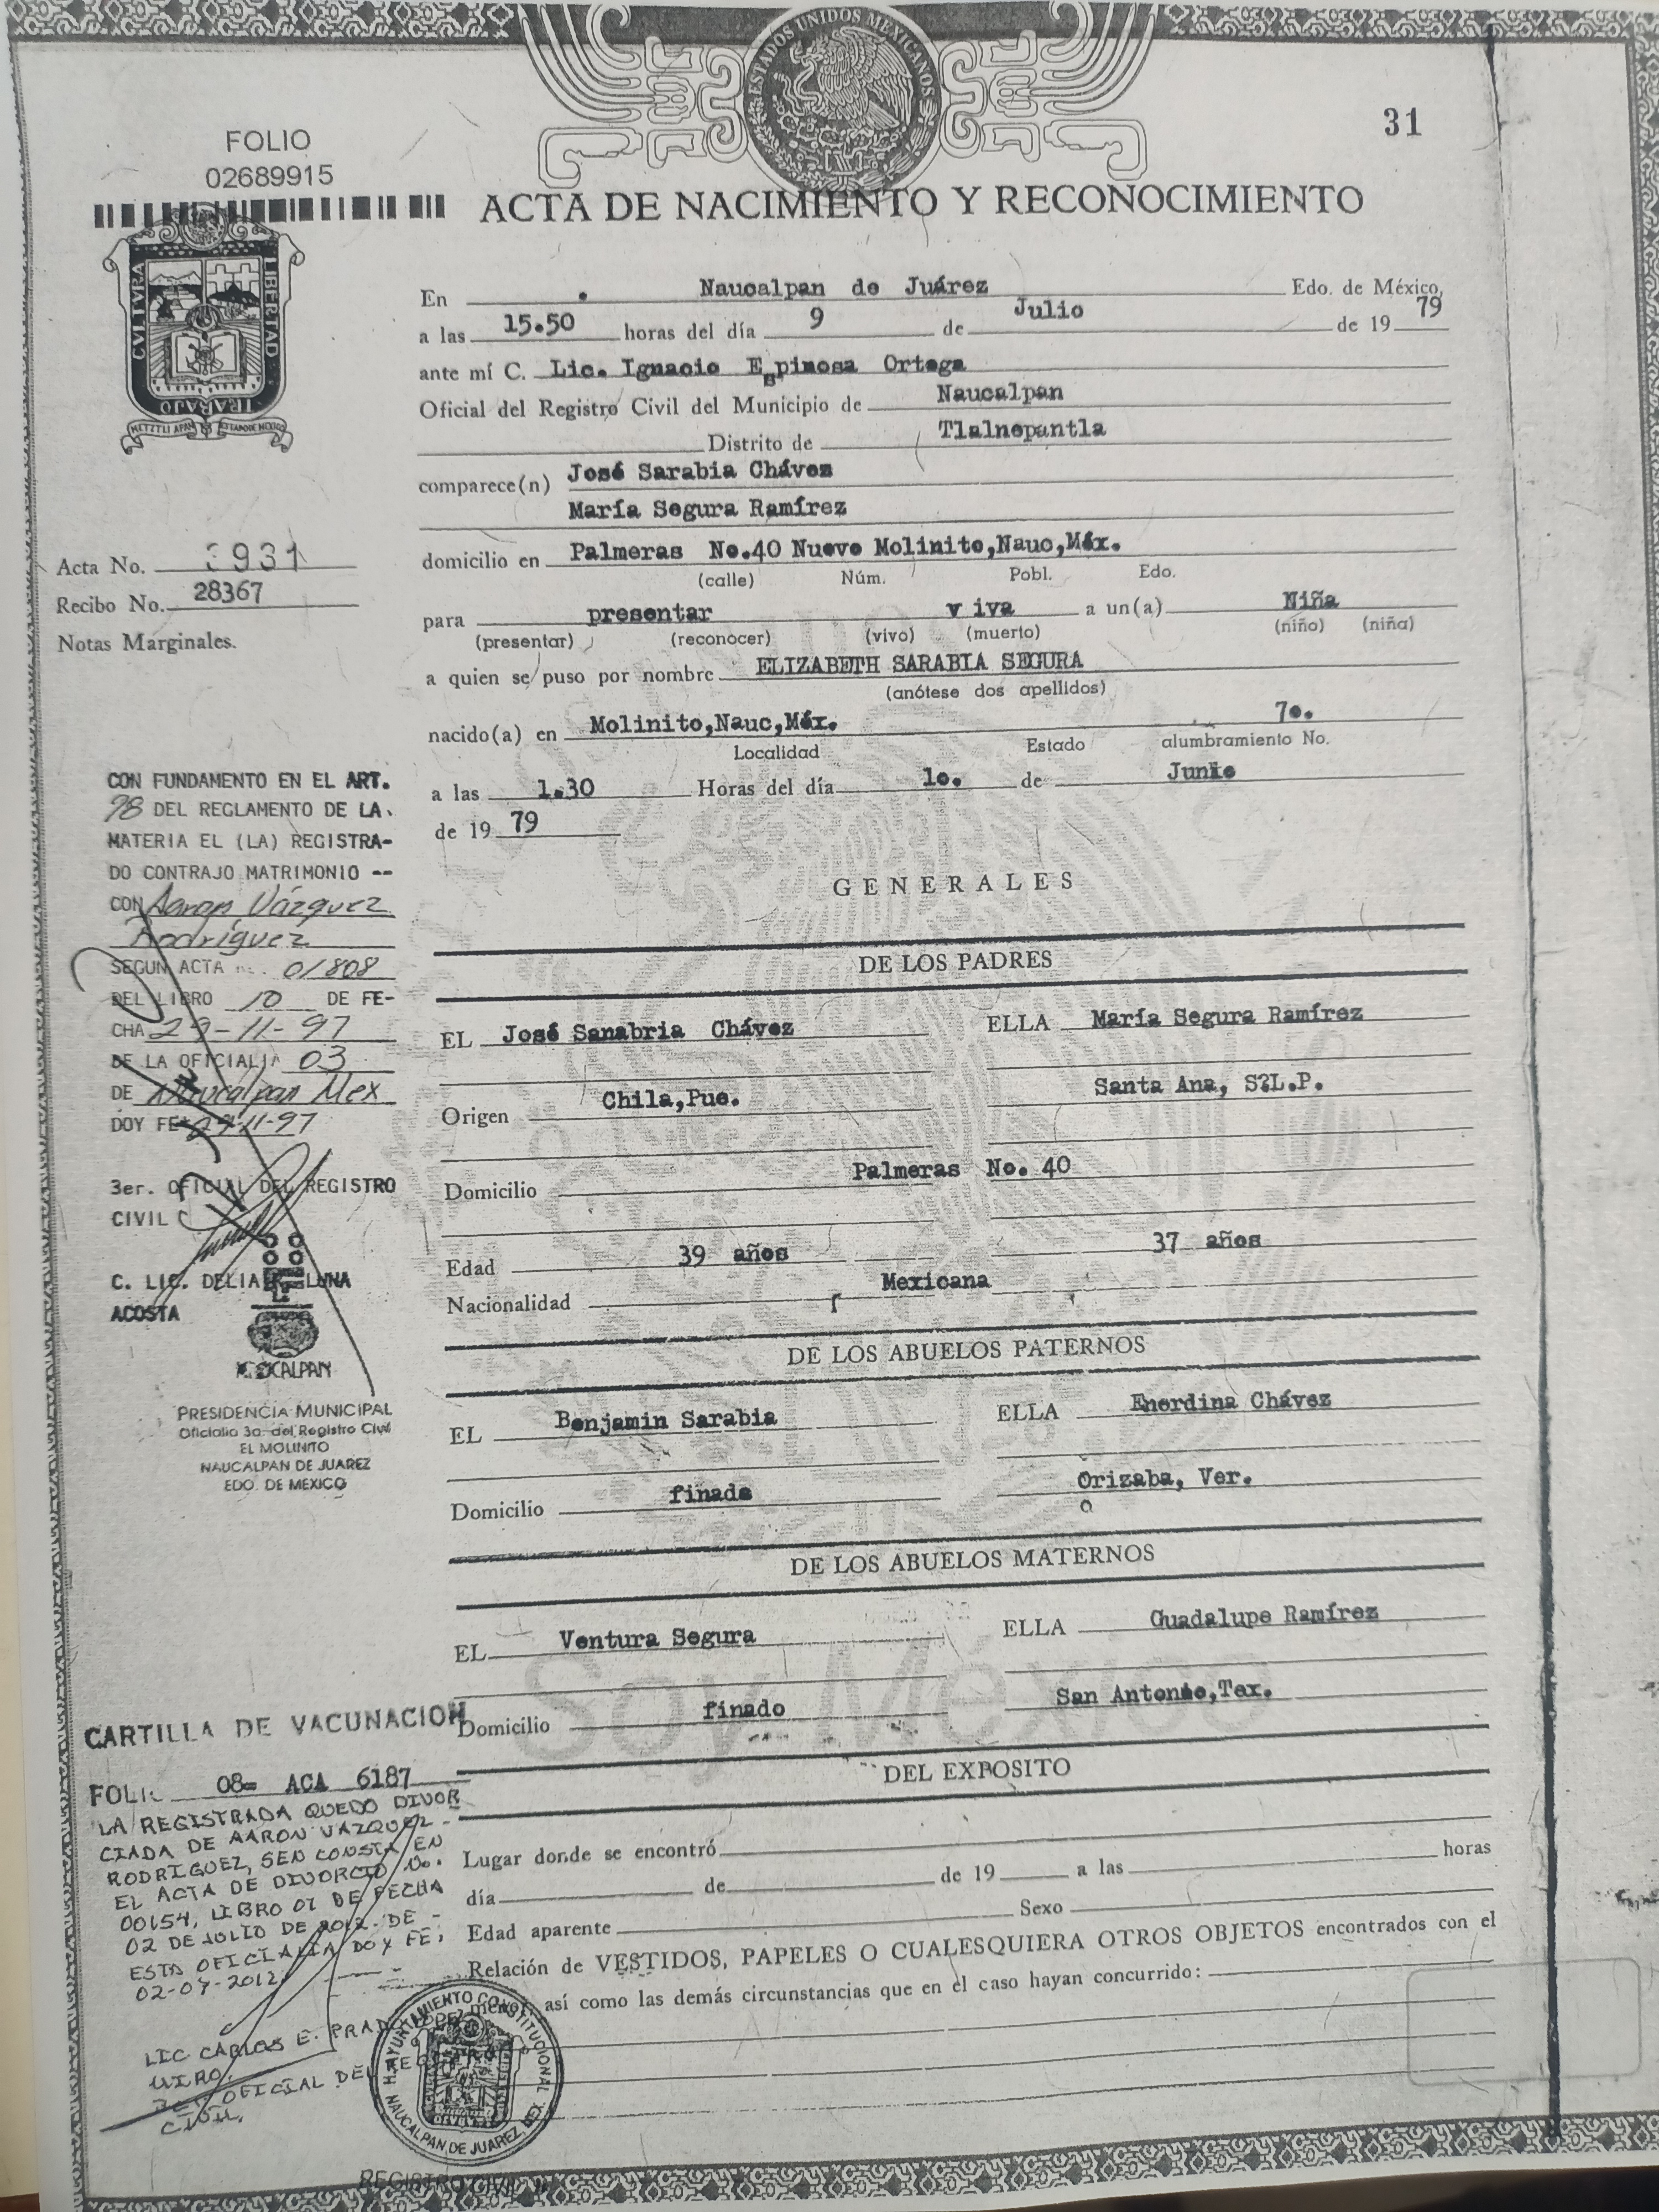 ESTADOS UNIDOS MEXICANOS
31
FOLIO
02689915
ACTA DE NACIMIENTO Y RECONOCIMIENTO
CVLTVRA
LIBERTAD
TRABAJO
En Naucalpan de Juárez Edo. de México,
a las 15.50 horas del día 9 de Julio de 19 79
ante mí C. Lic. Ignacio Espinosa Ortega
Oficial del Registro Civil del Municipio de Naucalpan
Distrito de Tlalnepantla
comparece(n) José Sarabia Chávez
María Segura Ramírez
domicilio en Palmeras No.40 Nuevo Molinito,Nauc,Méx.
(calle) Núm. Pobl. Edo.
para presentar v iva a un(a) Niña
(presentar) (reconocer) (vivo) (muerto) (niño) (niña)
a quien se puso por nombre ELIZABETH SARABIA SEGURA
(anótese dos apellidos)
nacido(a) en Molinito,Nauc,Méx. 7o.
Localidad Estado alumbramiento No.
a las 1.30 Horas del día 1o. de Junio
de 19 79
Acta No. 3931
Recibo No. 28367
Notas Marginales.
CON FUNDAMENTO EN EL ART.
78 DEL REGLAMENTO DE LA
MATERIA EL (LA) REGISTRA-
DO CONTRAJO MATRIMONIO --
CON Aaron Vázquez
Rodríguez
SEGUN ACTA 01808
DEL LIBRO 10 DE FE-
CHA 29-11-97
DE LA OFICIALIA 03
DE Naucalpan Mex
DOY FE 29-11-97
3er. OFICIAL DEL REGISTRO
CIVIL
C. LIC. DELIA LUNA
ACOSTA
NAUCALPAN
PRESIDENCIA MUNICIPAL
Oficialia 3a. del Registro Civil
EL MOLINITO
NAUCALPAN DE JUAREZ
EDO. DE MEXICO
GENERALES
DE LOS PADRES
EL José Sanabria Chávez ELLA María Segura Ramírez
Origen Chila,Pue. Santa Ana, S?L.P.
Domicilio Palmeras No. 40
Edad 39 años 37 años
Nacionalidad Mexicana
DE LOS ABUELOS PATERNOS
EL Benjamin Sarabia ELLA Enerdina Chávez
Domicilio finado Orizaba, Ver.
DE LOS ABUELOS MATERNOS
EL Ventura Segura ELLA Guadalupe Ramírez
Domicilio finado San Antonio,Tex.
Soy México
DEL EXPOSITO
Lugar donde se encontró
día de de 19 a las horas
Edad aparente Sexo
Relación de VESTIDOS, PAPELES O CUALESQUIERA OTROS OBJETOS encontrados con el
menor, así como las demás circunstancias que en el caso hayan concurrido:
CARTILLA DE VACUNACION
FOLIO 08= ACA 6187
LA REGISTRADA QUEDO DIVOR
CIADA DE AARON VAZQUEZ -
RODRIGUEZ, SEN CONSTA EN
EL ACTA DE DIVORCIO No.
00154, LIBRO 01 DE FECHA
02 DE JULIO DE 2012. DE -
ESTA OFICIALIA DOY FE,
02-07-2012
LIC CARLOS E. PRADO
OFICIAL DEL
CIVIL.
H. AYUNTAMIENTO CONSTITUCIONAL
NAUCALPAN DE JUAREZ
REGISTRO CIVIL